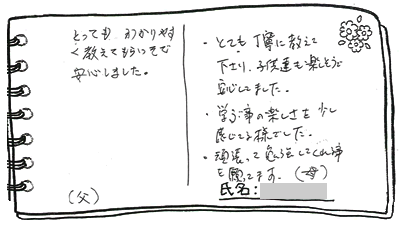 とっても わかりやす
く教えてもらったので
安心しました。
(父)
・とても丁寧に教えて
下さり、子供達も楽しそうで
安心してました。
・学ぶ事の楽しさを少し
感じてる様でした。
・頑張って勉強してくれる事
を願ってます。(母)
氏名: